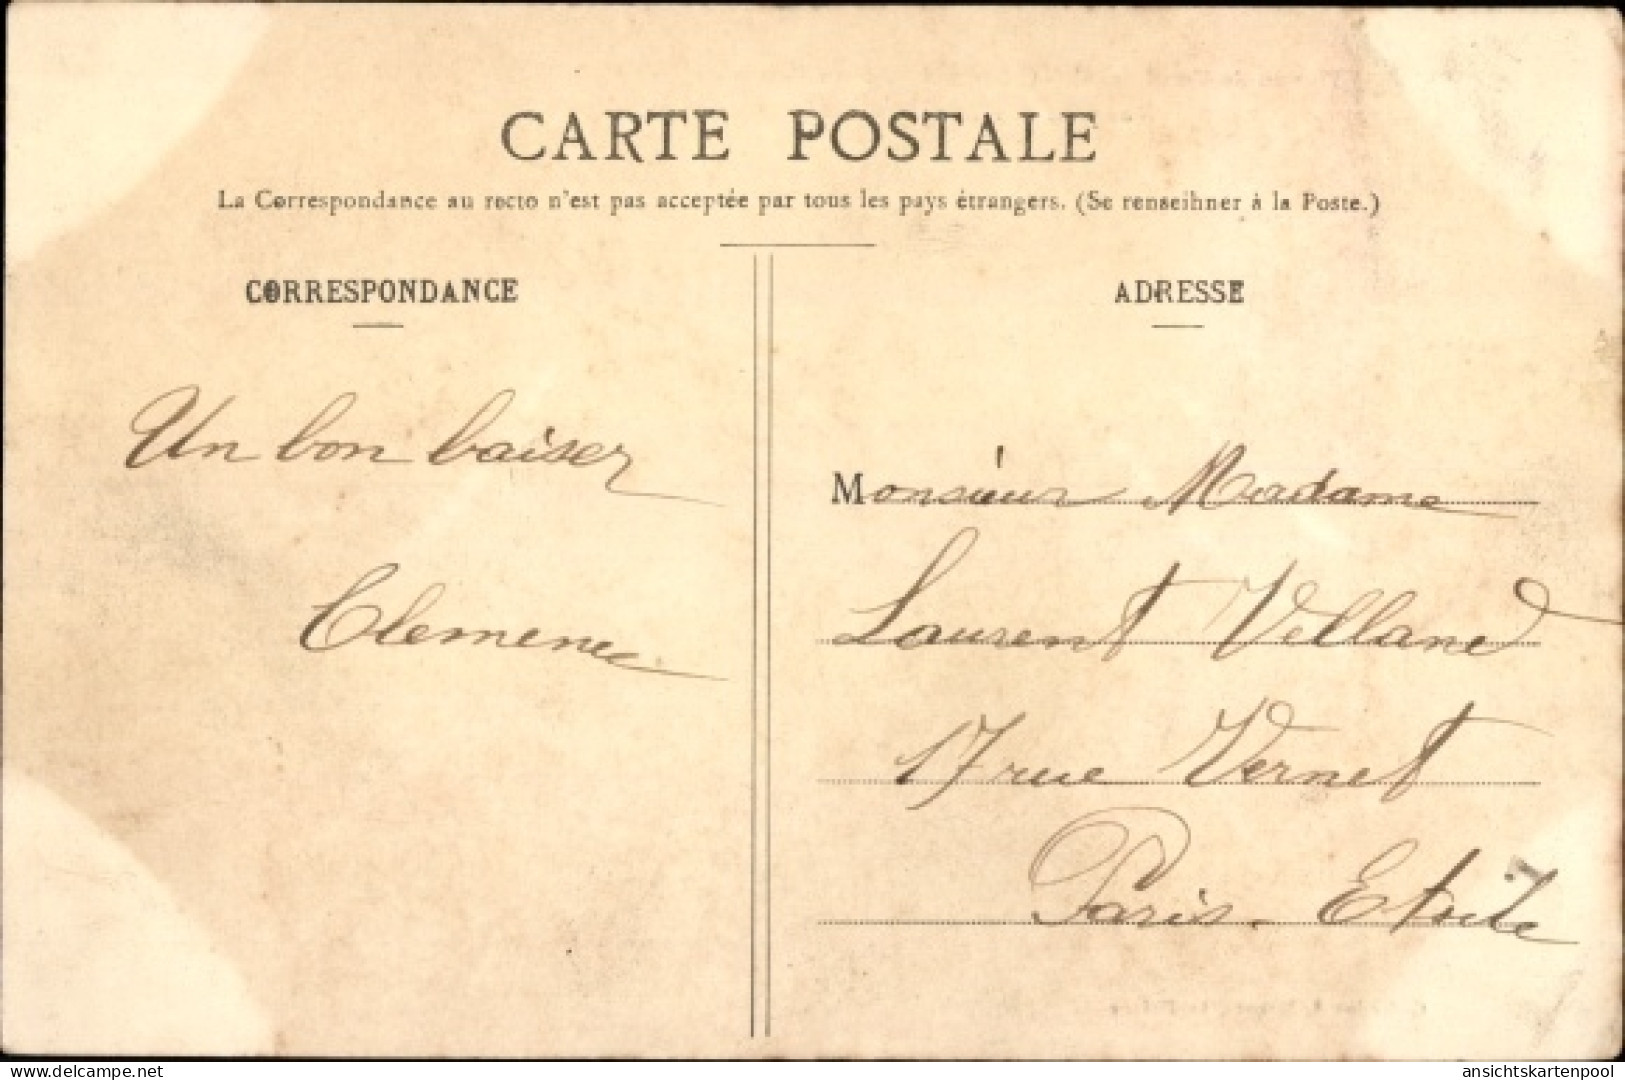 CARTE POSTALE
La Correspondance au recto n'est pas acceptée par tous les pays étrangers. (Se renseihner à la Poste.)
CORRESPONDANCE
ADRESSE
Un bon baiser
Clemence
Monsieur Madame
Laurent Velland
17 rue Vernet
Paris. Etoile
www.delcampe.net
ansichtskartenpool